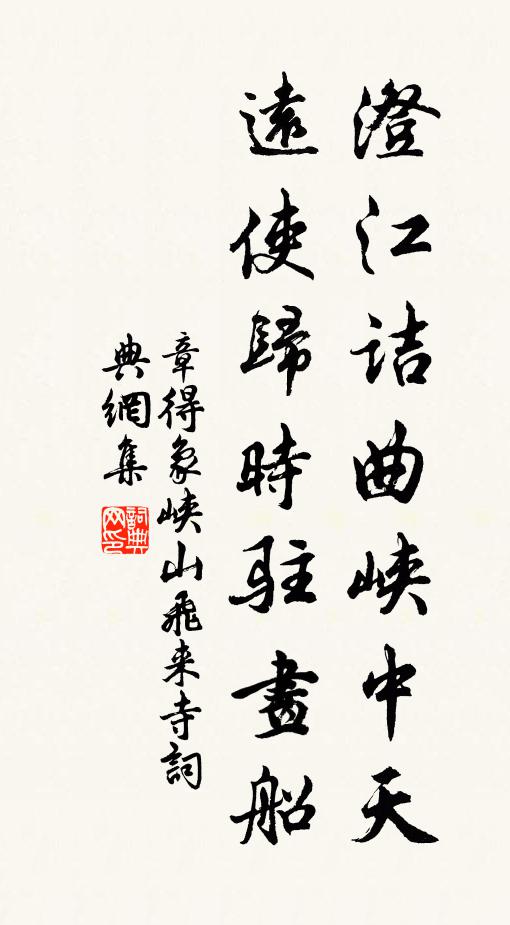 澄江詰曲峽中天
遠使歸時駐畫船
章得象峽山飛来寺詞
典網集
詞典
网印